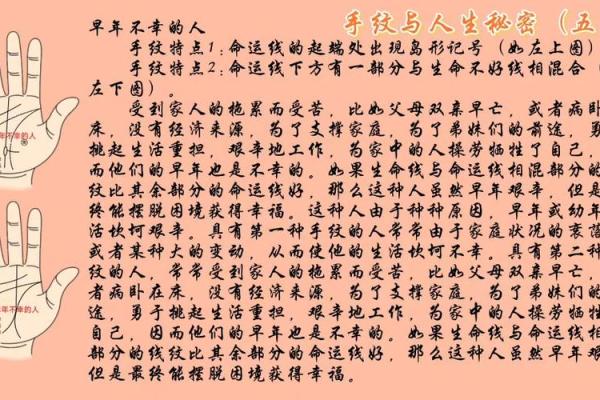 手纹与人生秘密（五
早年不幸的人
手纹特点1：命运线的起端处出现岛形记号（如左上图）
手纹特点2：命运线下方有一部分与生命不好线相混合（
左下图）。
受到家人的拖累而受苦，比如父母双亲早亡，或者病卧
床，没有经济来源，为了支撑家庭，为了弟妹们的前途，勇
挑起生活重担，艰辛地工作，为家中的人操劳牺牲了自己，
而他们的早年也是不幸的。如果生命线与命运线相混部分的
纹比其余部分的命运线好，那么这种人虽然早年艰辛，但是
终能摆脱困境获得幸福。这种人由于种种原因，早年或幼年
活坎坷艰辛。具有第一种手纹的人常常由于家庭状况的衰落
或者某种大的变动，从而使他的生活坎坷不幸。具有第二种
纹的人，常常受到家人的拖累而受苦，比如父母双亲早亡，
者病卧在床，没有经济来源，为了支撑家庭，为了弟妹们的
途，勇于挑起生活重担，艰辛地工作，为家中的人操劳牺牲
自己，因而他们的早年也是不幸的。如果生命线与命运线相
部分的线纹比其余部分的命运线好，那么这种人虽然早年艰
但是最终能摆脱困境获得幸福。
年不幸的人
年不幸的人